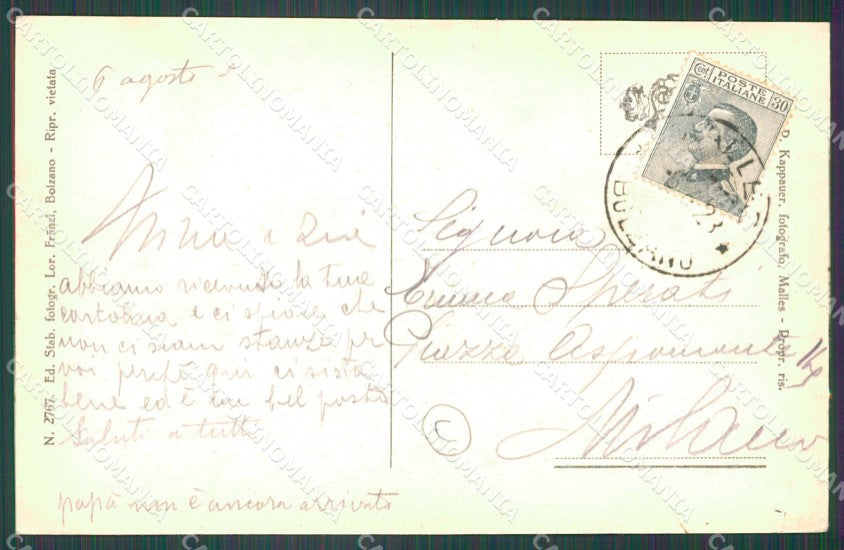 6 agosto
abbiamo ricevuto la tua
cartolina e ci spiace che
non ci siano stanze per
voi perché qui ci si sta
bene ed è un bel posto
Saluti a tutti
papà non è ancora arrivato
Signora
Emma Sperati
Piazza Aspromonte
Milano
L
Cent POSTE ITALIANE 30
BOLZANO
23
N. 2767. Ed. Stab. fotogr. Lor. Fränzl, Bolzano - Ripr. vietata
Kappauer, fotografo, Malles - Propr. ris.
CARTOLINOMANIA